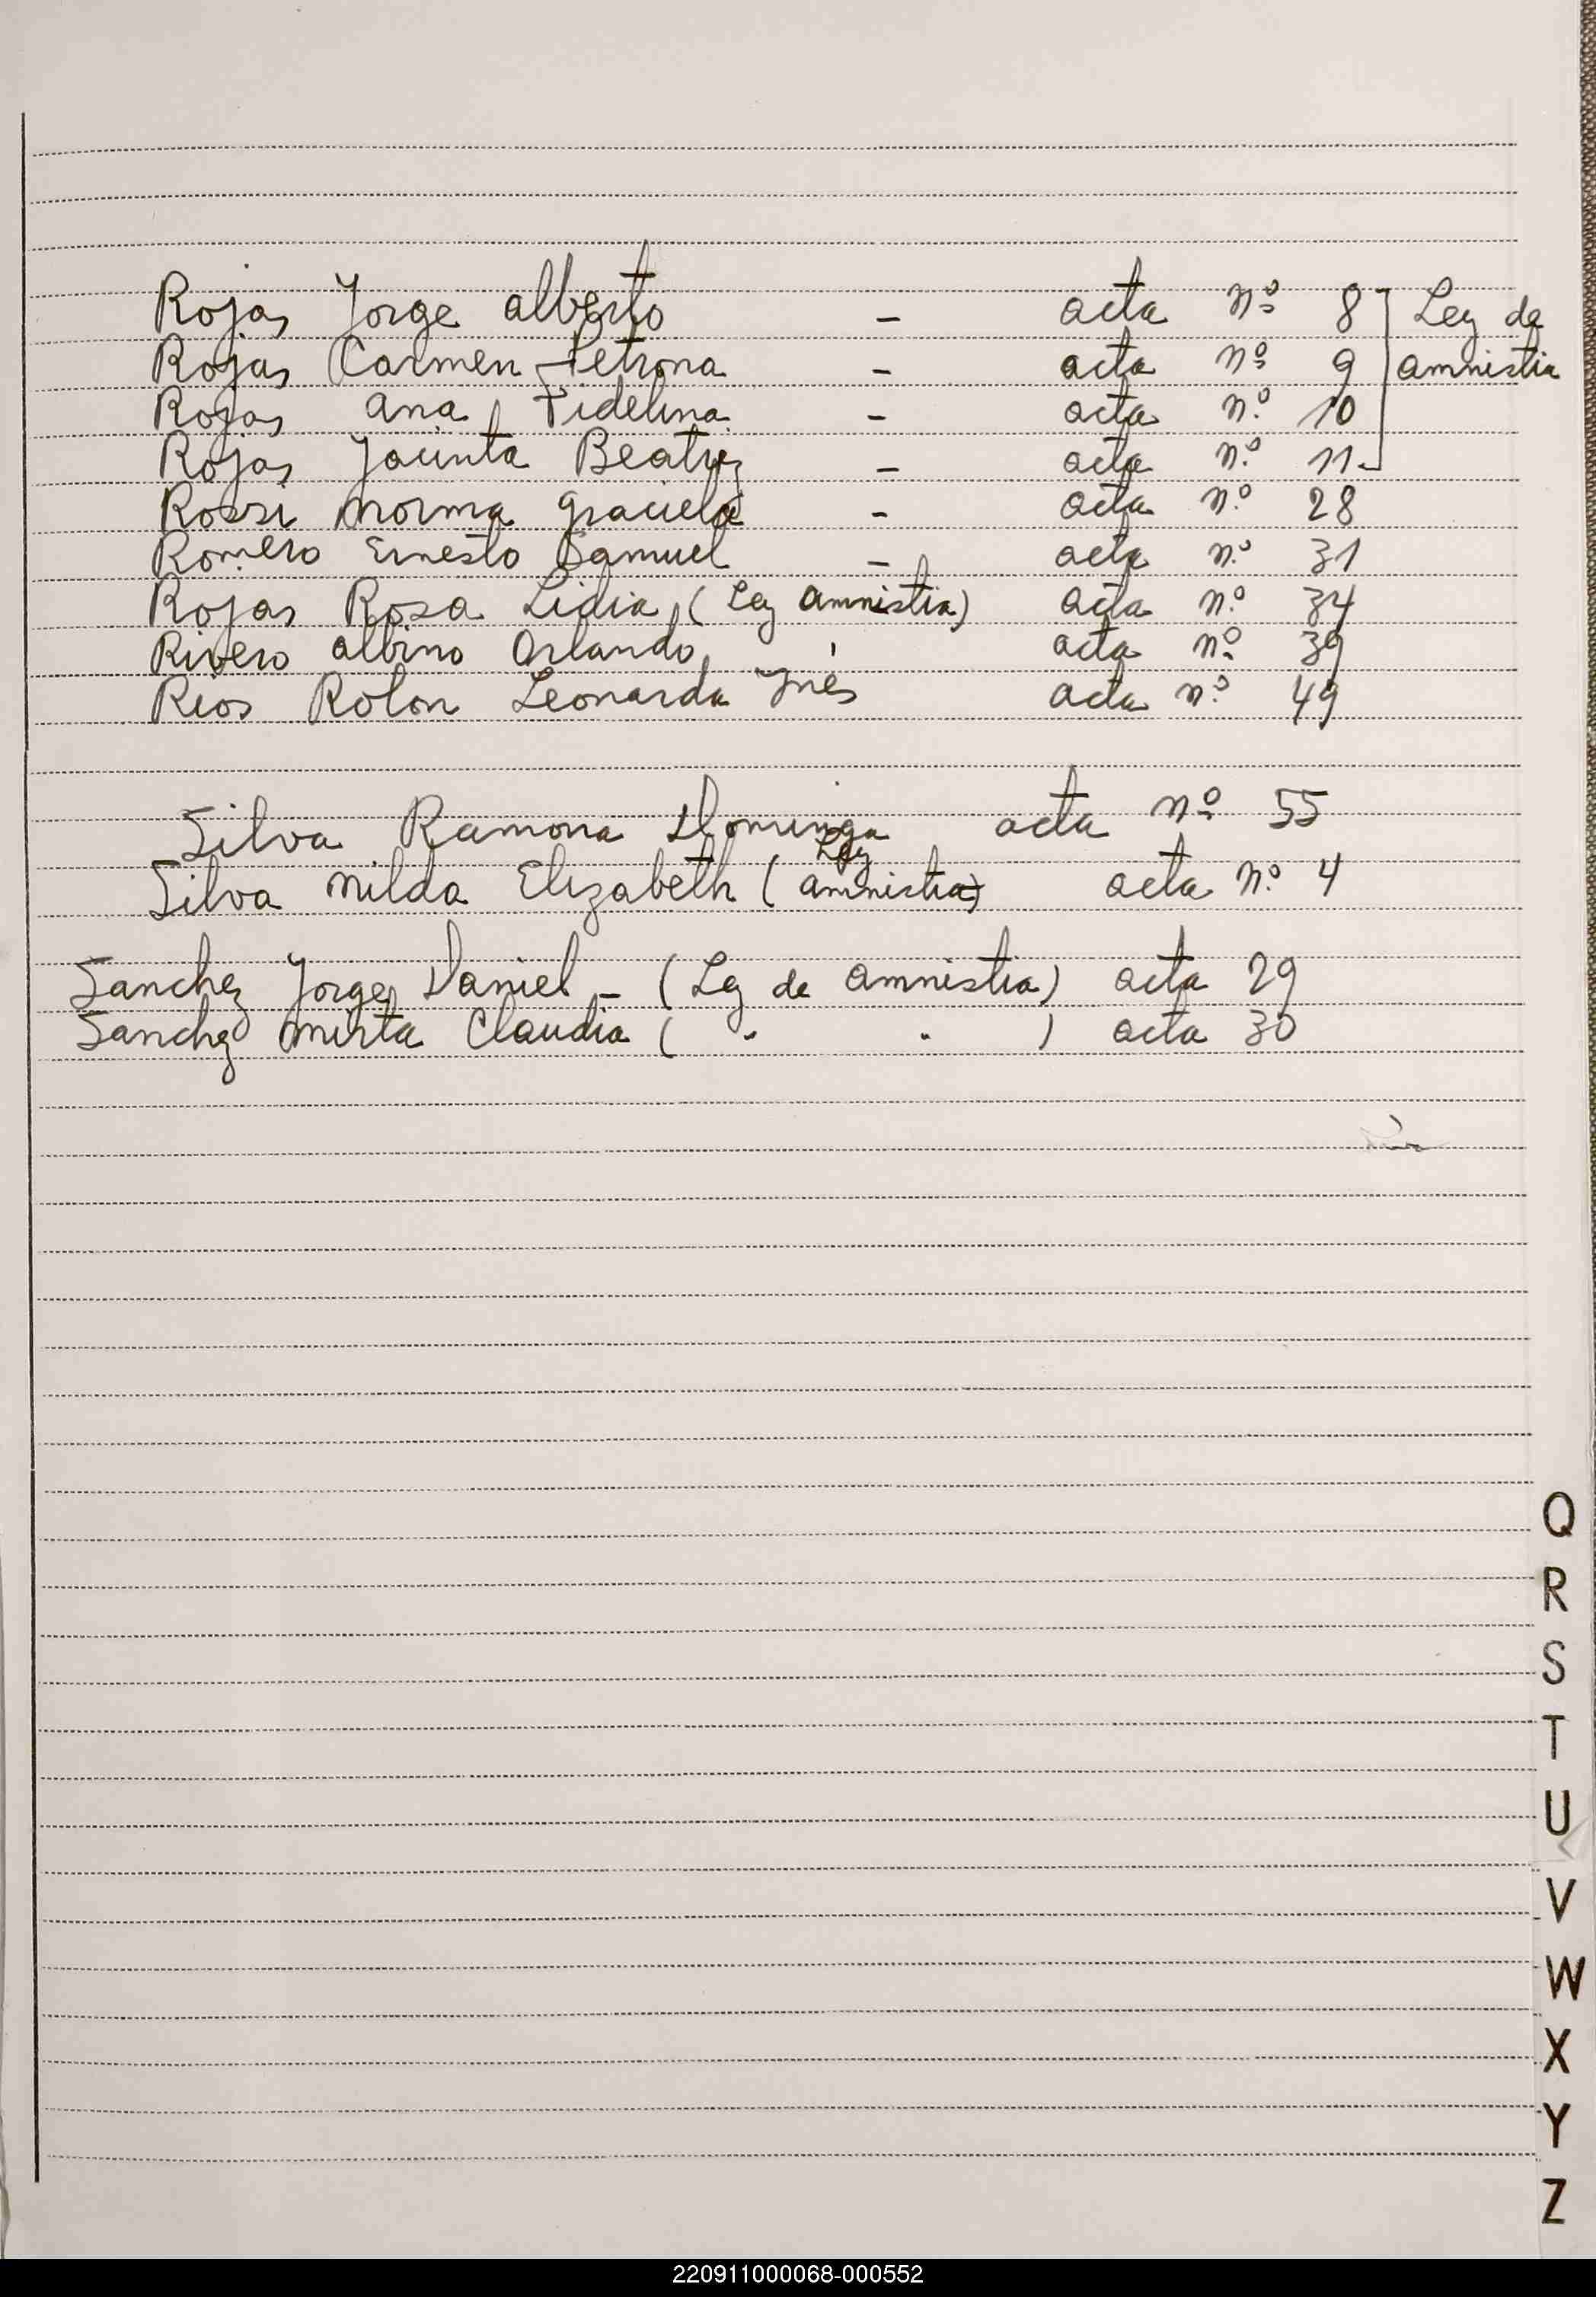 Rojas Jorge Alberto - acta nº 8 Ley de
Rojas Carmen Petrona - acta nº 9 amnistia
Rojas Ana Fidelina - acta nº 10
Rojas Jacinta Beatriz - acta nº 11
Rossi Norma Graciela - acta nº 28
Romero Ernesto Samuel - acta nº 31
Rojas Rosa Lidia (Ley amnistia) acta nº 34
Rivero Albino Orlando acta nº 39
Rios Rolon Leonarda Inés acta nº 49
Silva Ramona Dominga acta nº 55
Silva Nilda Elizabeth (Ley amnistia) acta nº 4
Sanchez Jorge Daniel - (Ley de amnistia) acta 29
Sanchez Mirta Claudia ( " " ) acta 30
Q
R
S
T
U
V
W
X
Y
Z
220911000068-000552